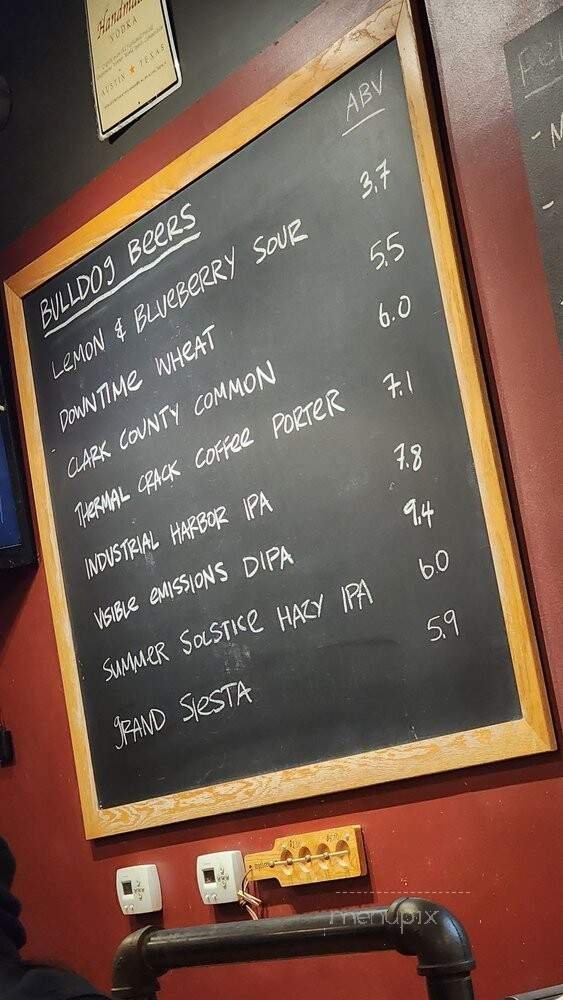 Handmade
VODKA
AUSTIN ★ TEXAS
BULLDOG BEERS ABV
LEMON & BLUEBERRY SOUR 3.7
DOWNTIME WHEAT 5.5
CLARK COUNTY COMMON 6.0
THERMAL CRACK COFFEE PORTER 7.1
INDUSTRIAL HARBOR IPA 7.8
VISIBLE EMISSIONS DIPA 9.4
SUMMER SOLSTICE HAZY IPA 6.0
GRAND SIESTA 5.9
menupix